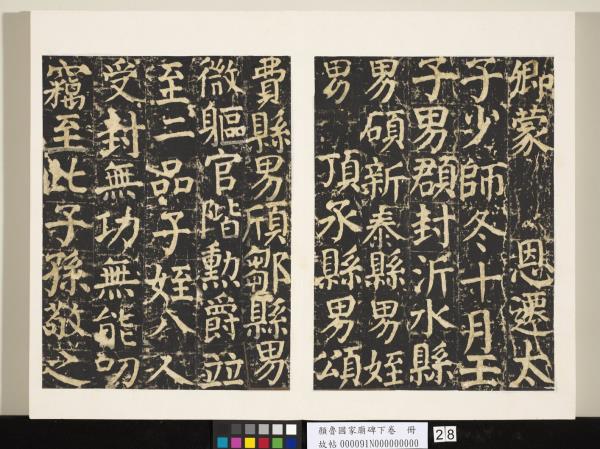 卿蒙 恩遷太
子少師冬十月壬
子男頵封沂水縣
男碩新泰縣男姪
男 頂承縣男頌
費縣男頎鄒縣男
微軀官階勳爵竝
至三品子姪八人
受封無功無能叨
竊至此子孫敬之
顏魯國家廟碑下卷 冊
故帖 000091N000000000
28